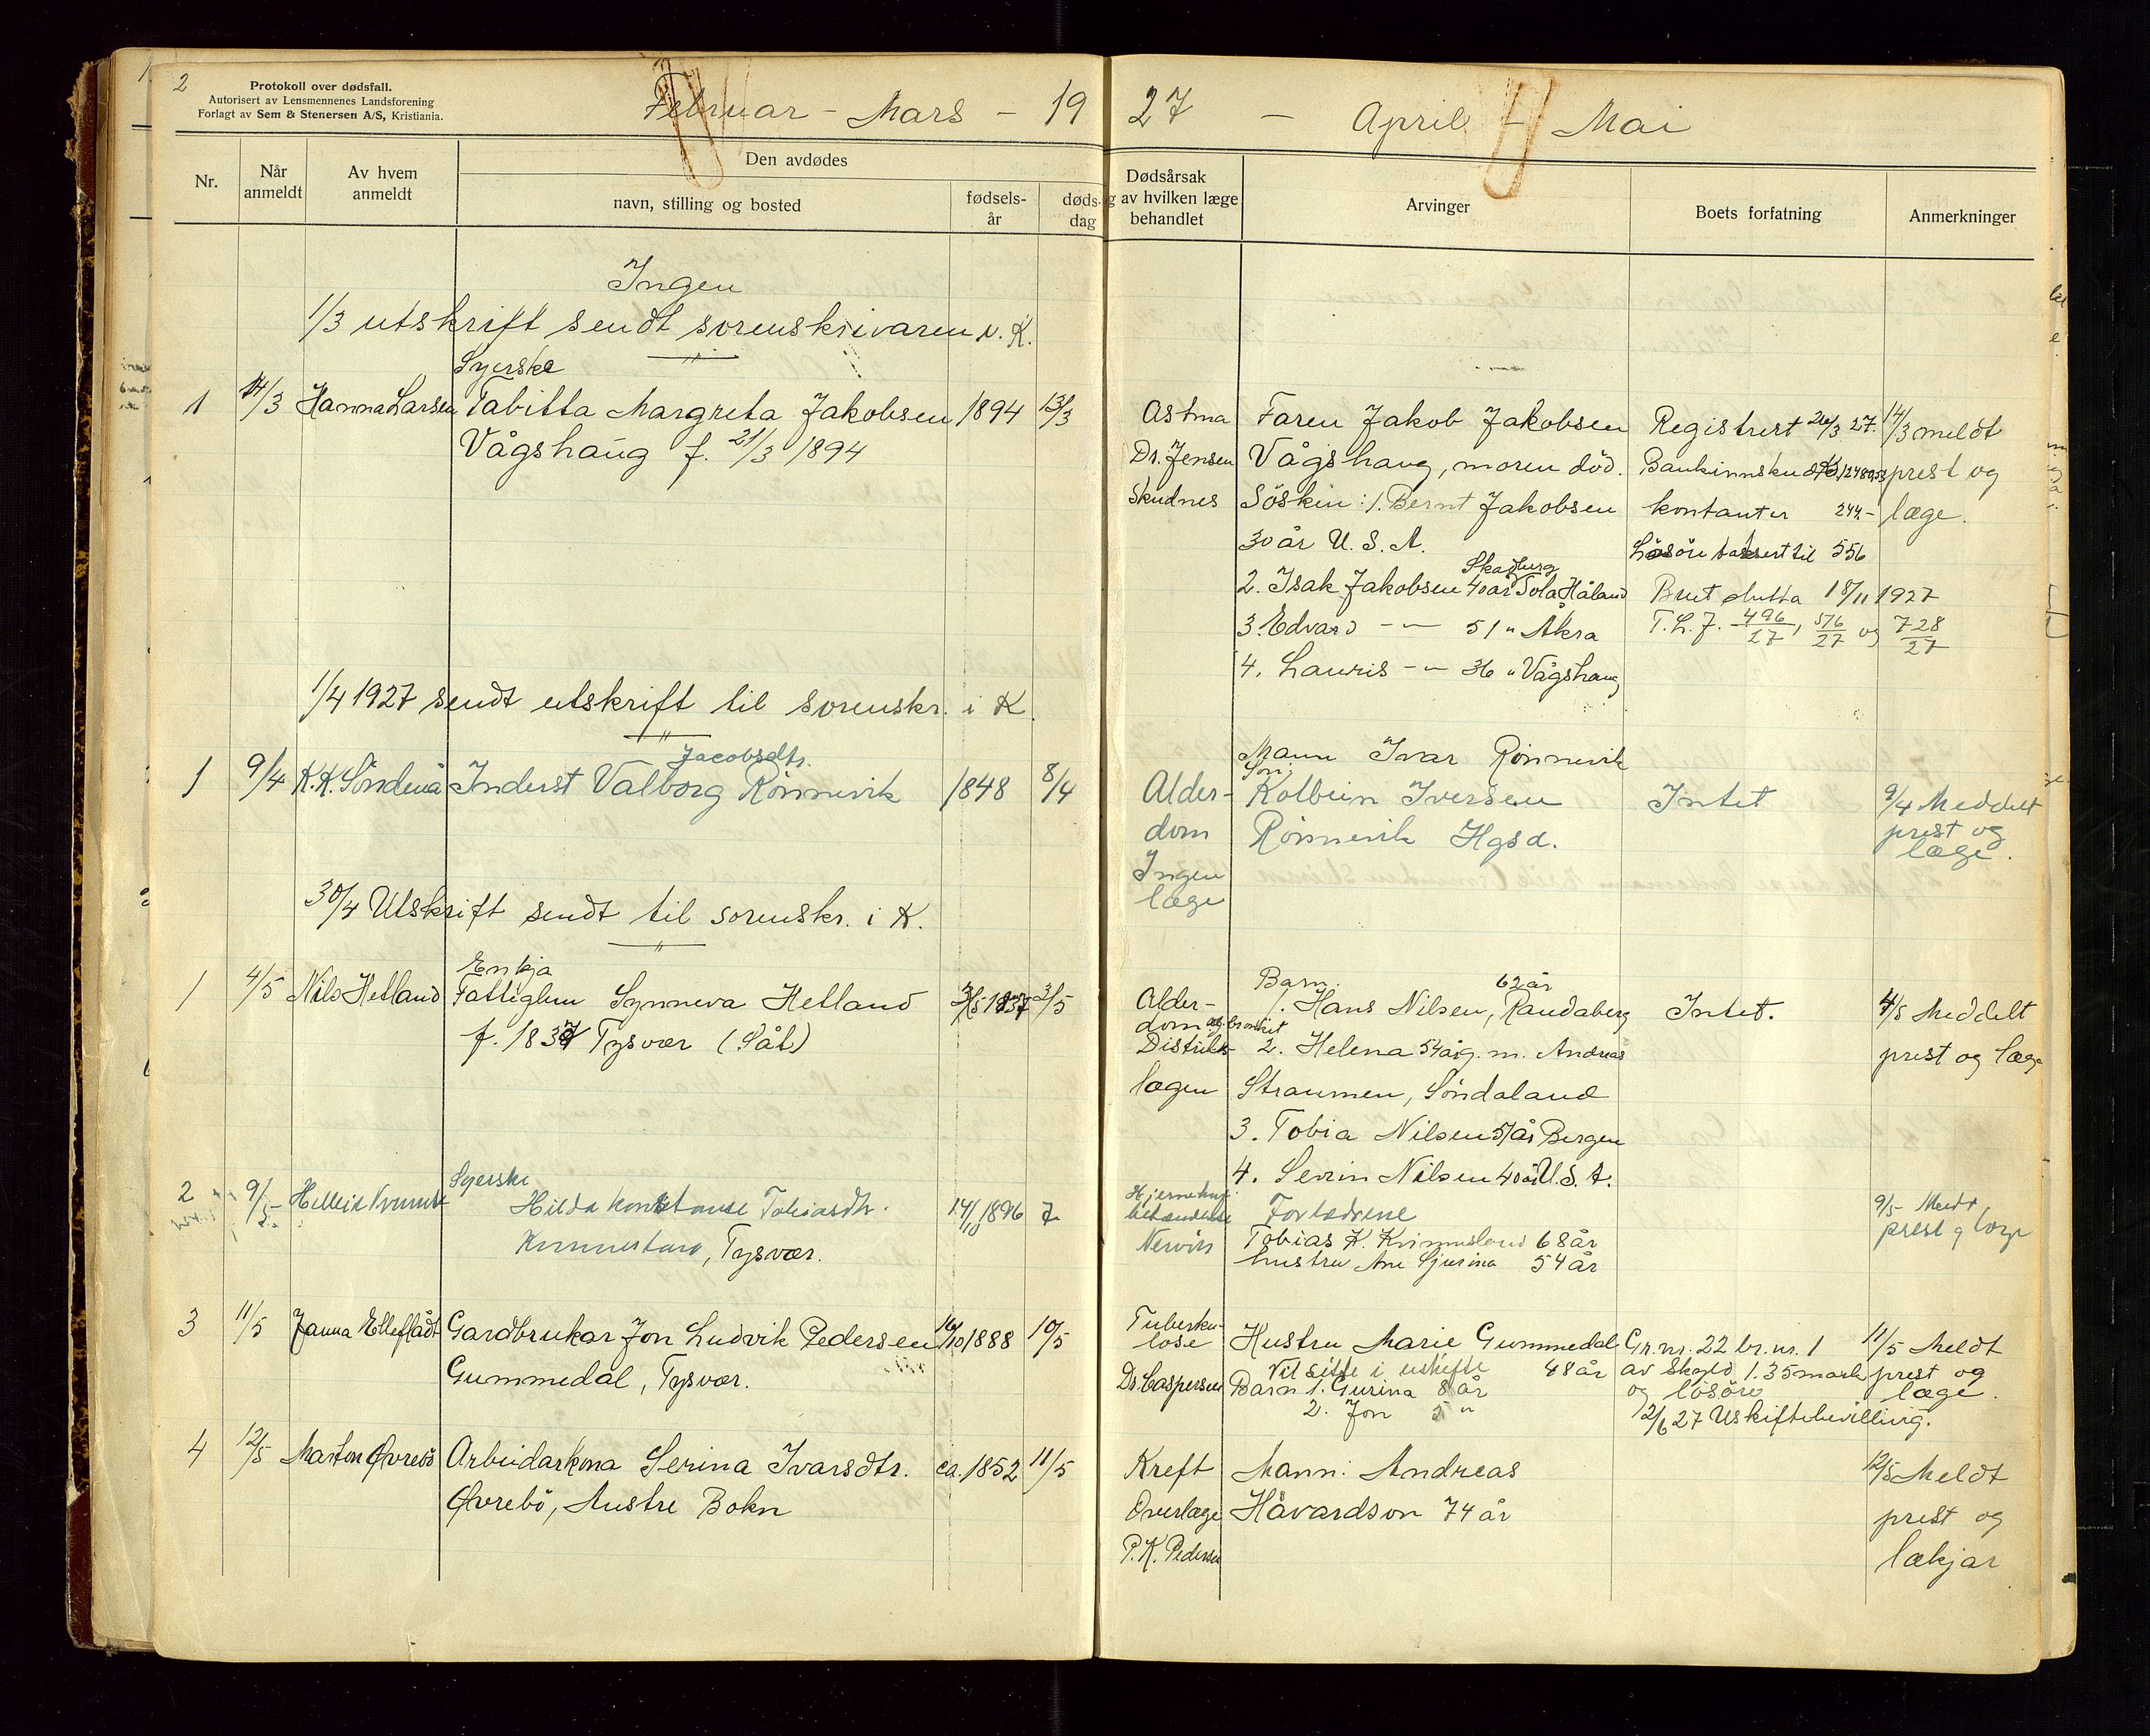 2
Protokoll over dødsfall.
Autorisert av Lensmennenes Landsforening
Forlagt av Sem & Stenersen A/S, Kristiania.
Februar - Mars - 19
Nr.
Når anmeldt
Av hvem anmeldt
Den avdødes
navn, stilling og bosted
fødsels-
år
døds-
dag
Ingen
1/3 utskrift sendt sorenskrivaren i K.
Syerske
1 14/3 Hanna Larsen Tabitta Margreta Jakobsen 1894 13/3
Vågshaug f. 21/3 1894
1/4 1927 sendt utskrift til sorenskr. i K.
Jacobsdtr.
1 9/4 K.K. Söndenå Inderst Valborg Rönnevik 1848 8/4
30/4 Utskrift sendt til sorenskr. i K.
Enkja
1 4/5 Nils Hetland Fattiglem Synneva Hetland 1837 3/5
f. 1837 Tysvær
Syerske
2 9/5 Hilda Konstanse Tobiasdtr. 14/10 1896 7
Tysvær.
3 11/5 Janna Elleflådt Gardbrukar Jon Ludvik Pedersen 16/10 1888 10/5
Gummedal, Tysvær.
4 12/5 Marton Øvrebö Arbeidarkona Serina Ivarsdtr. ca. 1852 11/5
Øvrebö, Austre Bokn
27 - April - Mai
Dødsårsak
og av hvilken læge
behandlet
Arvinger
Boets forfatning
Anmerkninger
Astma Faren Jakob Jakobsen Registrert 26/3 27. 14/3 meldt
Dr. Jensen Vågshaug, moren död. Bankinnskudd prest og
Skudnes Söskin: 1. Bernt Jakobsen kontanter 244.- læge.
30 år U.S.A. Lösöre taksert til 556
Skadberg
2. Isak Jakobsen 40 år Sola Håland Buet slutta 18/11 1927
3. Edvard -"- 51 " Åkra T.L.J. 496/27, 576/27 og 728/27
4. Lauris -"- 36 " Vågshaug
Mann Ivar Rönnevik
Son:
Alder- Kolbein Iversen Intet 9/4 Meddelt
dom Rönnevik Hgsd. prest og
læge.
Ingen
læge
Barn. 62 år
Alder- 1. Hans Nilsen, Randaberg Intet. 4/5 Meddelt
dom og bronkit
Distrikts- 2. Helena 54 år g. m. Andreas prest og læge
lægen Straumen, Söndaland
3. Tobia Nilsen 51 år Bergen
4. Serin Nilsen 40 år U.S.A.
Foreldrene 9/5 Meldt
Tobias K. Kvinnesland 68 år prest og læge
hustru Ane Sjurina 54 år
Tuberku-
lose Hustru Marie Gummedal Gr.nr. 22 br.nr. 1 11/5 Meldt
Vil sitte i uskifte 48 år av skyld 1.35 mark prest og
Dr. Caspersen Barn 1. Gurina 8 år og lösöre læge.
2. Jon 5 " 12/6 27 Uskiftebevilling.
Kreft Mann: Andreas 12/5 Meldt
Overlæge Håvardson 74 år prest og
P.K. Pedersen lækjar